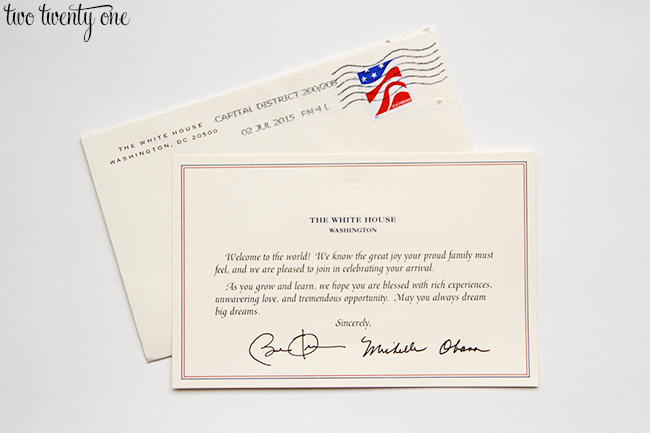 two twenty one
CAPITAL DISTRICT 200/208
02 JUL 2015 PM 4 L
THE WHITE HOUSE
WASHINGTON, DC 20500
THE WHITE HOUSE
WASHINGTON
Welcome to the world! We know the great joy your proud family must
feel, and we are pleased to join in celebrating your arrival.
As you grow and learn, we hope you are blessed with rich experiences,
unwavering love, and tremendous opportunity. May you always dream
big dreams.
Sincerely,
Michelle Obama